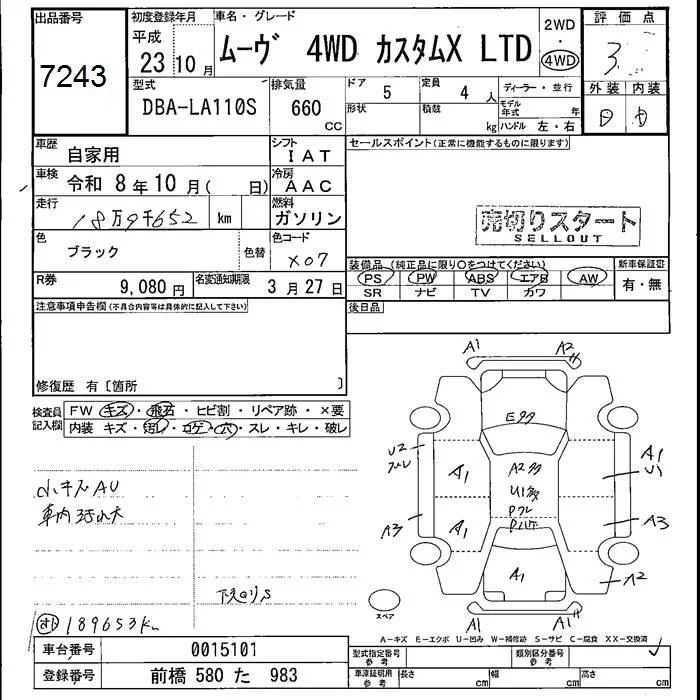 出品番号
7243
初度登録年月
平成
23 10月
車名・グレード
ムーヴ 4WD カスタムX LTD
2WD
・
4WD
評価点
3
外装 内装
D D
型式
DBA-LA110S
排気量
660
cc
ドア
5
形状
定員
4 人
積載
kg
ディーラー・並行
モデル年式 年
ハンドル 左・右
車歴
自家用
シフト
IAT
車検
令和 8年10月( 日)
冷房
AAC
走行
18万9千652
km
燃料
ガソリン
色
ブラック
色替
色コード
X07
R券
9,080円
名変通知期限
3月27日
セールスポイント(正常に機能するものに限ります)
売切りスタート
SELLOUT
装備品(純正品に限り○をつけてください)
PS PW ABS エアB AW
SR ナビ TV カワ
新車保証書
有・無
後日品
注意事項申告欄(不具合内容等は具体的に記入して下さい)
修復歴 有〔箇所 〕
検査員
記入欄
FW キズ・飛石・ヒビ割・リペア跡・×要
内装 キズ・汚レ・コゲ・穴・スレ・キレ・破レ
小キズAU
車内汚れ大
下廻りS
189653km
A1 A2
Eタタ
U2
スレ
A1
A2多
U1多
A1
U1
A3
A1
A3
A1
A2
A1 A1
スペア
A-キズ E-エクボ U-凹み W-補修跡 S-サビ C-腐食 XX-交換済
車台番号
0015101
登録番号
前橋 580 た 983
型式指定番号
参考
類別区分番号
参考
車庫証明用
参考
長さ cm
幅 cm
高さ cm